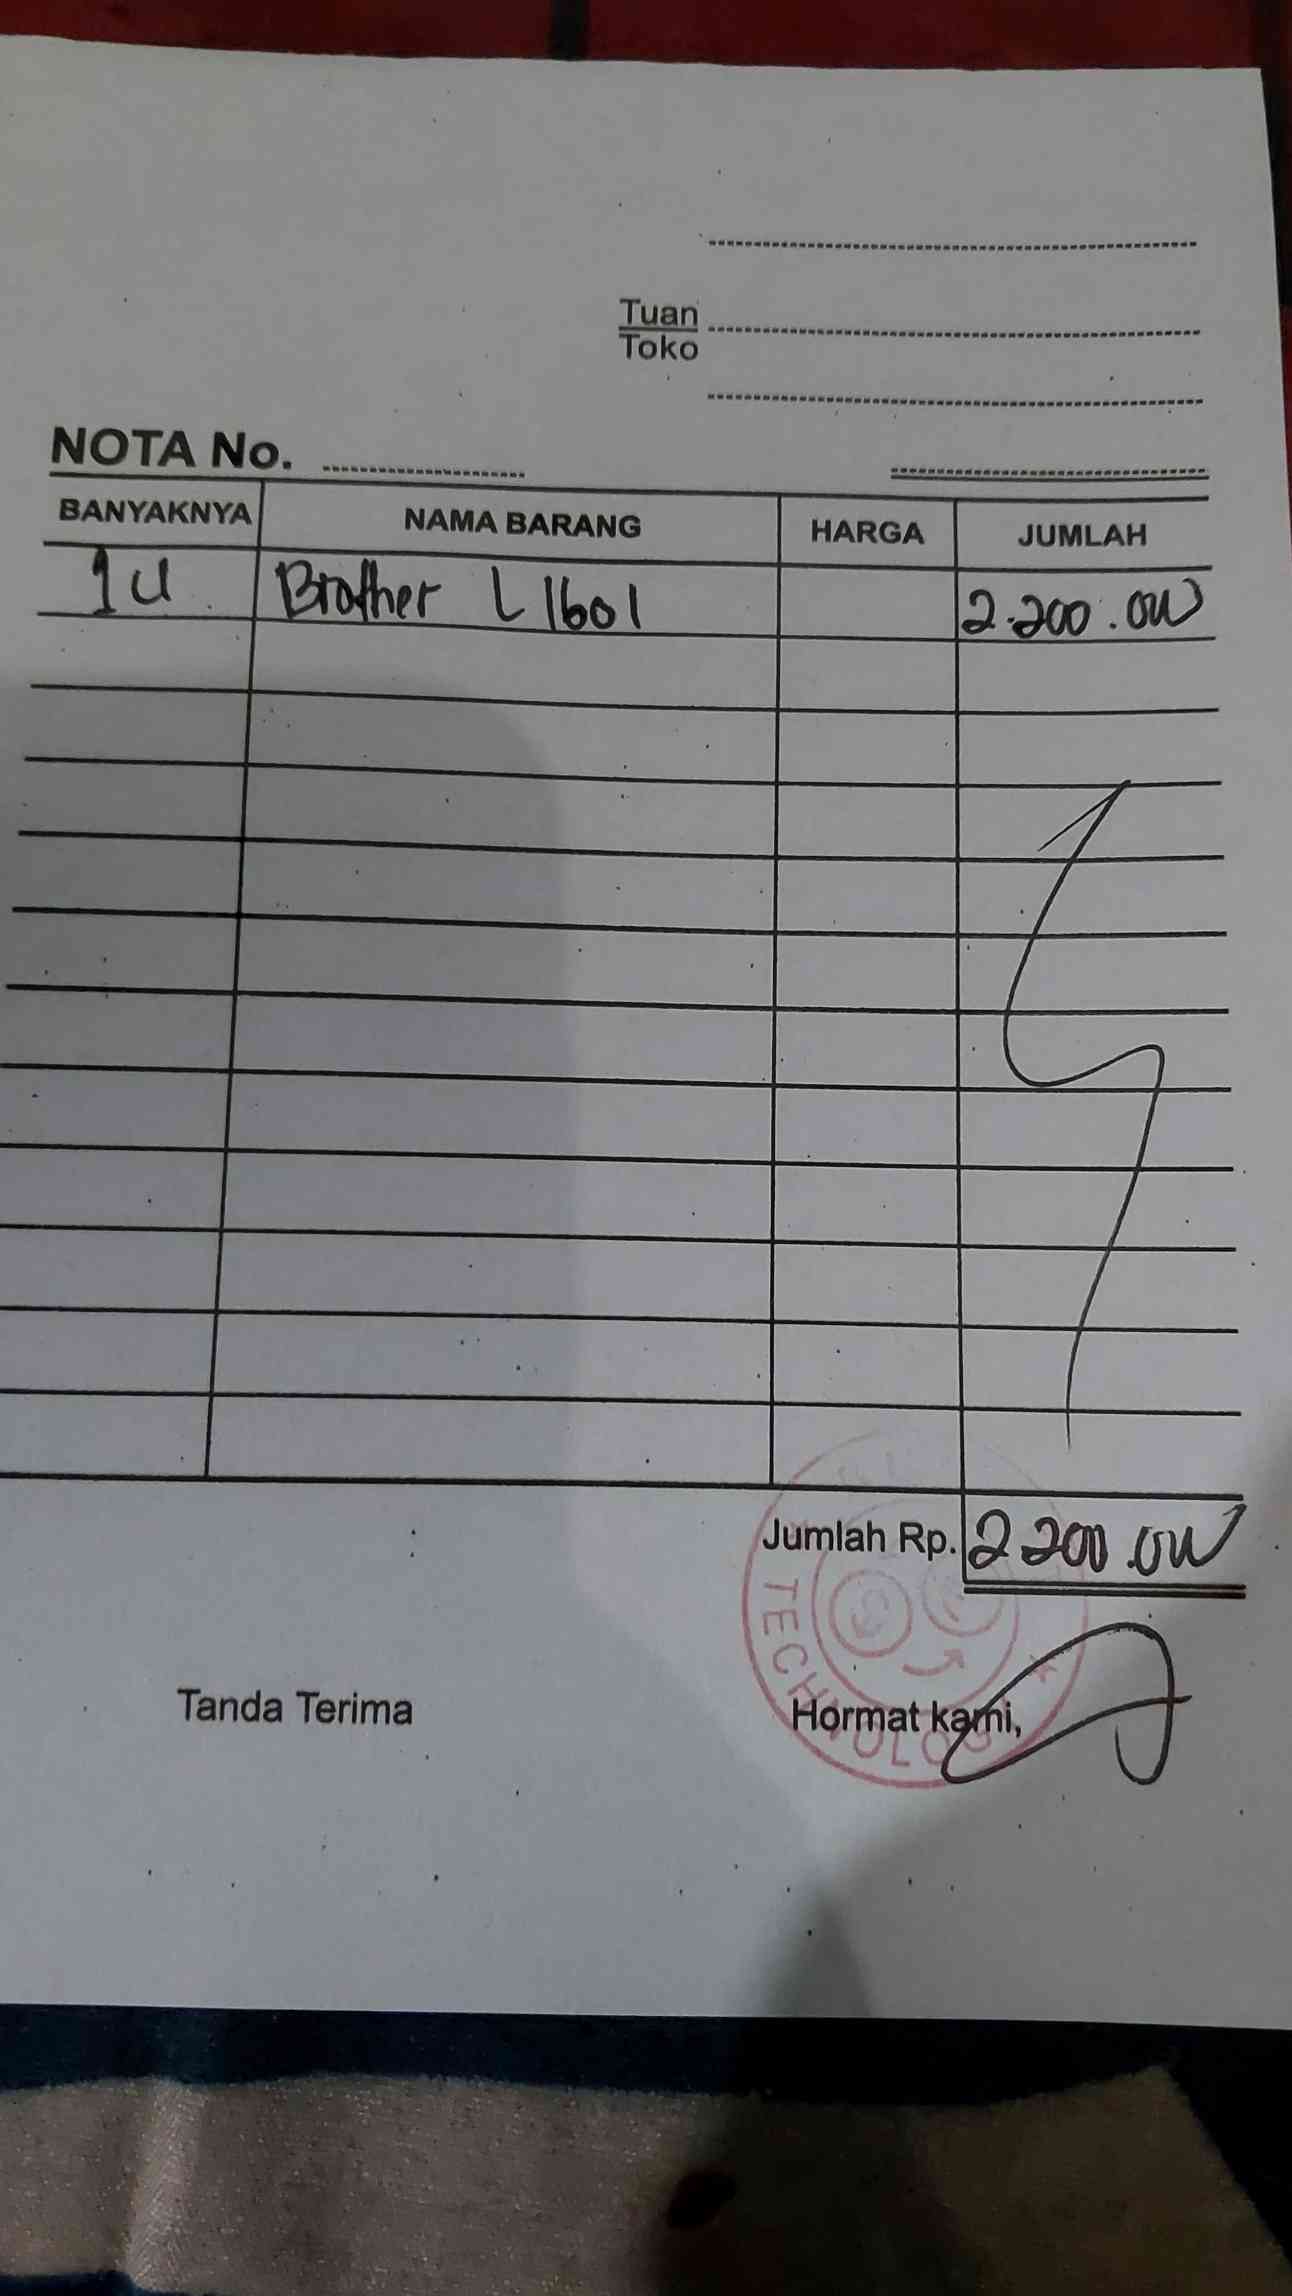 Tuan
Toko
NOTA No.
BANYAKNYA NAMA BARANG HARGA JUMLAH
1 U Brother L 1601 2.200.000
Jumlah Rp. 2 200.000
Tanda Terima Hormat kami,
TECHNOLOG